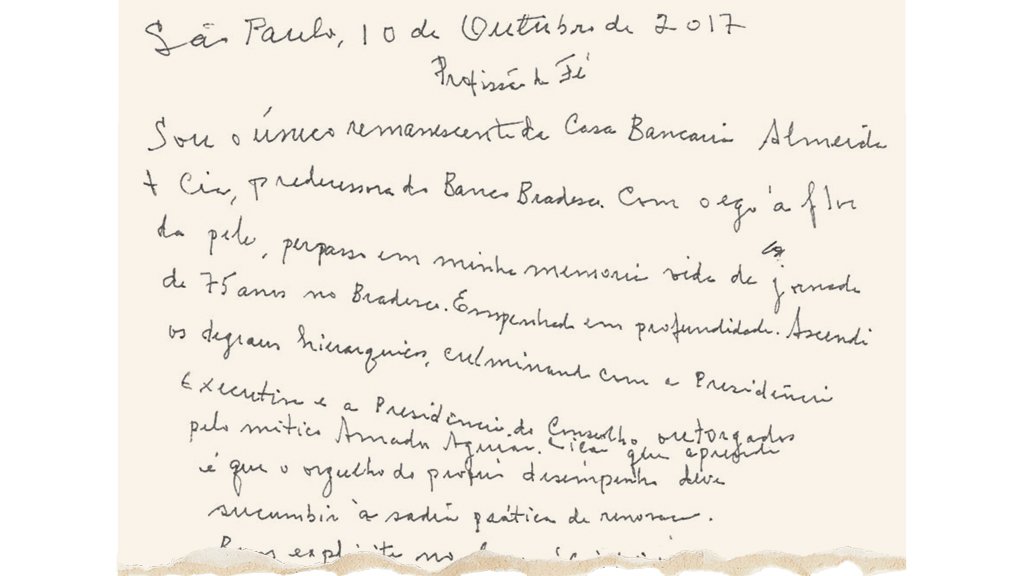 São Paulo, 10 de Outubro de 2017
Profissão de Fé
Sou o único remanescente da Casa Bancaria Almeida
+ Cia, predecessora do Banco Bradesco. Com o ego à flor
da pele, perpassa em minha memoria vida de jornada
de 75 anos no Bradesco. Empenhada em profundidade. Ascendi
os degraus hierarquicos, culminando com a Presidência
Executiva e a Presidência do Conselho, outorgados
pelo mitico Amador Aguiar. que aprendi
é que o orgulho do proprio desempenho deve
sucumbir à sadia prática de renovar.
explicito no